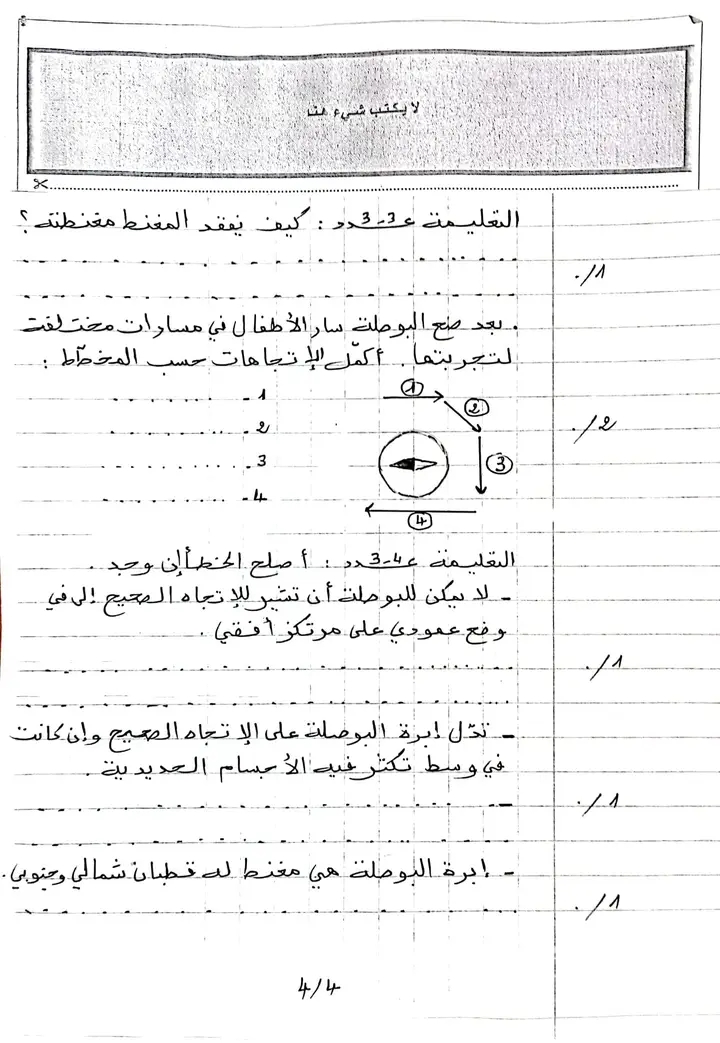 لا يكتب شيء هنا
التعليمة عـ3-3ـدد : كيف يفقد المغنط مغنطته ؟
/1
. بعد صنع البوصلة سار الأطفال في مسارات مختلفة
لتجربتها. أكمّل الإتجاهات حسب المخطّط :
1 -
2 -
3 -
4 -
1
2
3
4
/2
التعليمة عـ4-3ـدد : أصلح الخطأ إن وجد .
- لا يمكن للبوصلة أن تشير للإتجاه الصحيح إلى في
وضع عمودي على مرتكز أفقي .
/1
- تدّل إبرة البوصلة على الإتجاه الصحيح وإن كانت
في وسط تكثر فيه الأجسام الحديدية .
/1
- إبرة البوصلة هي مغنط له قطبان شمالي وجنوبي.
/1
4/4